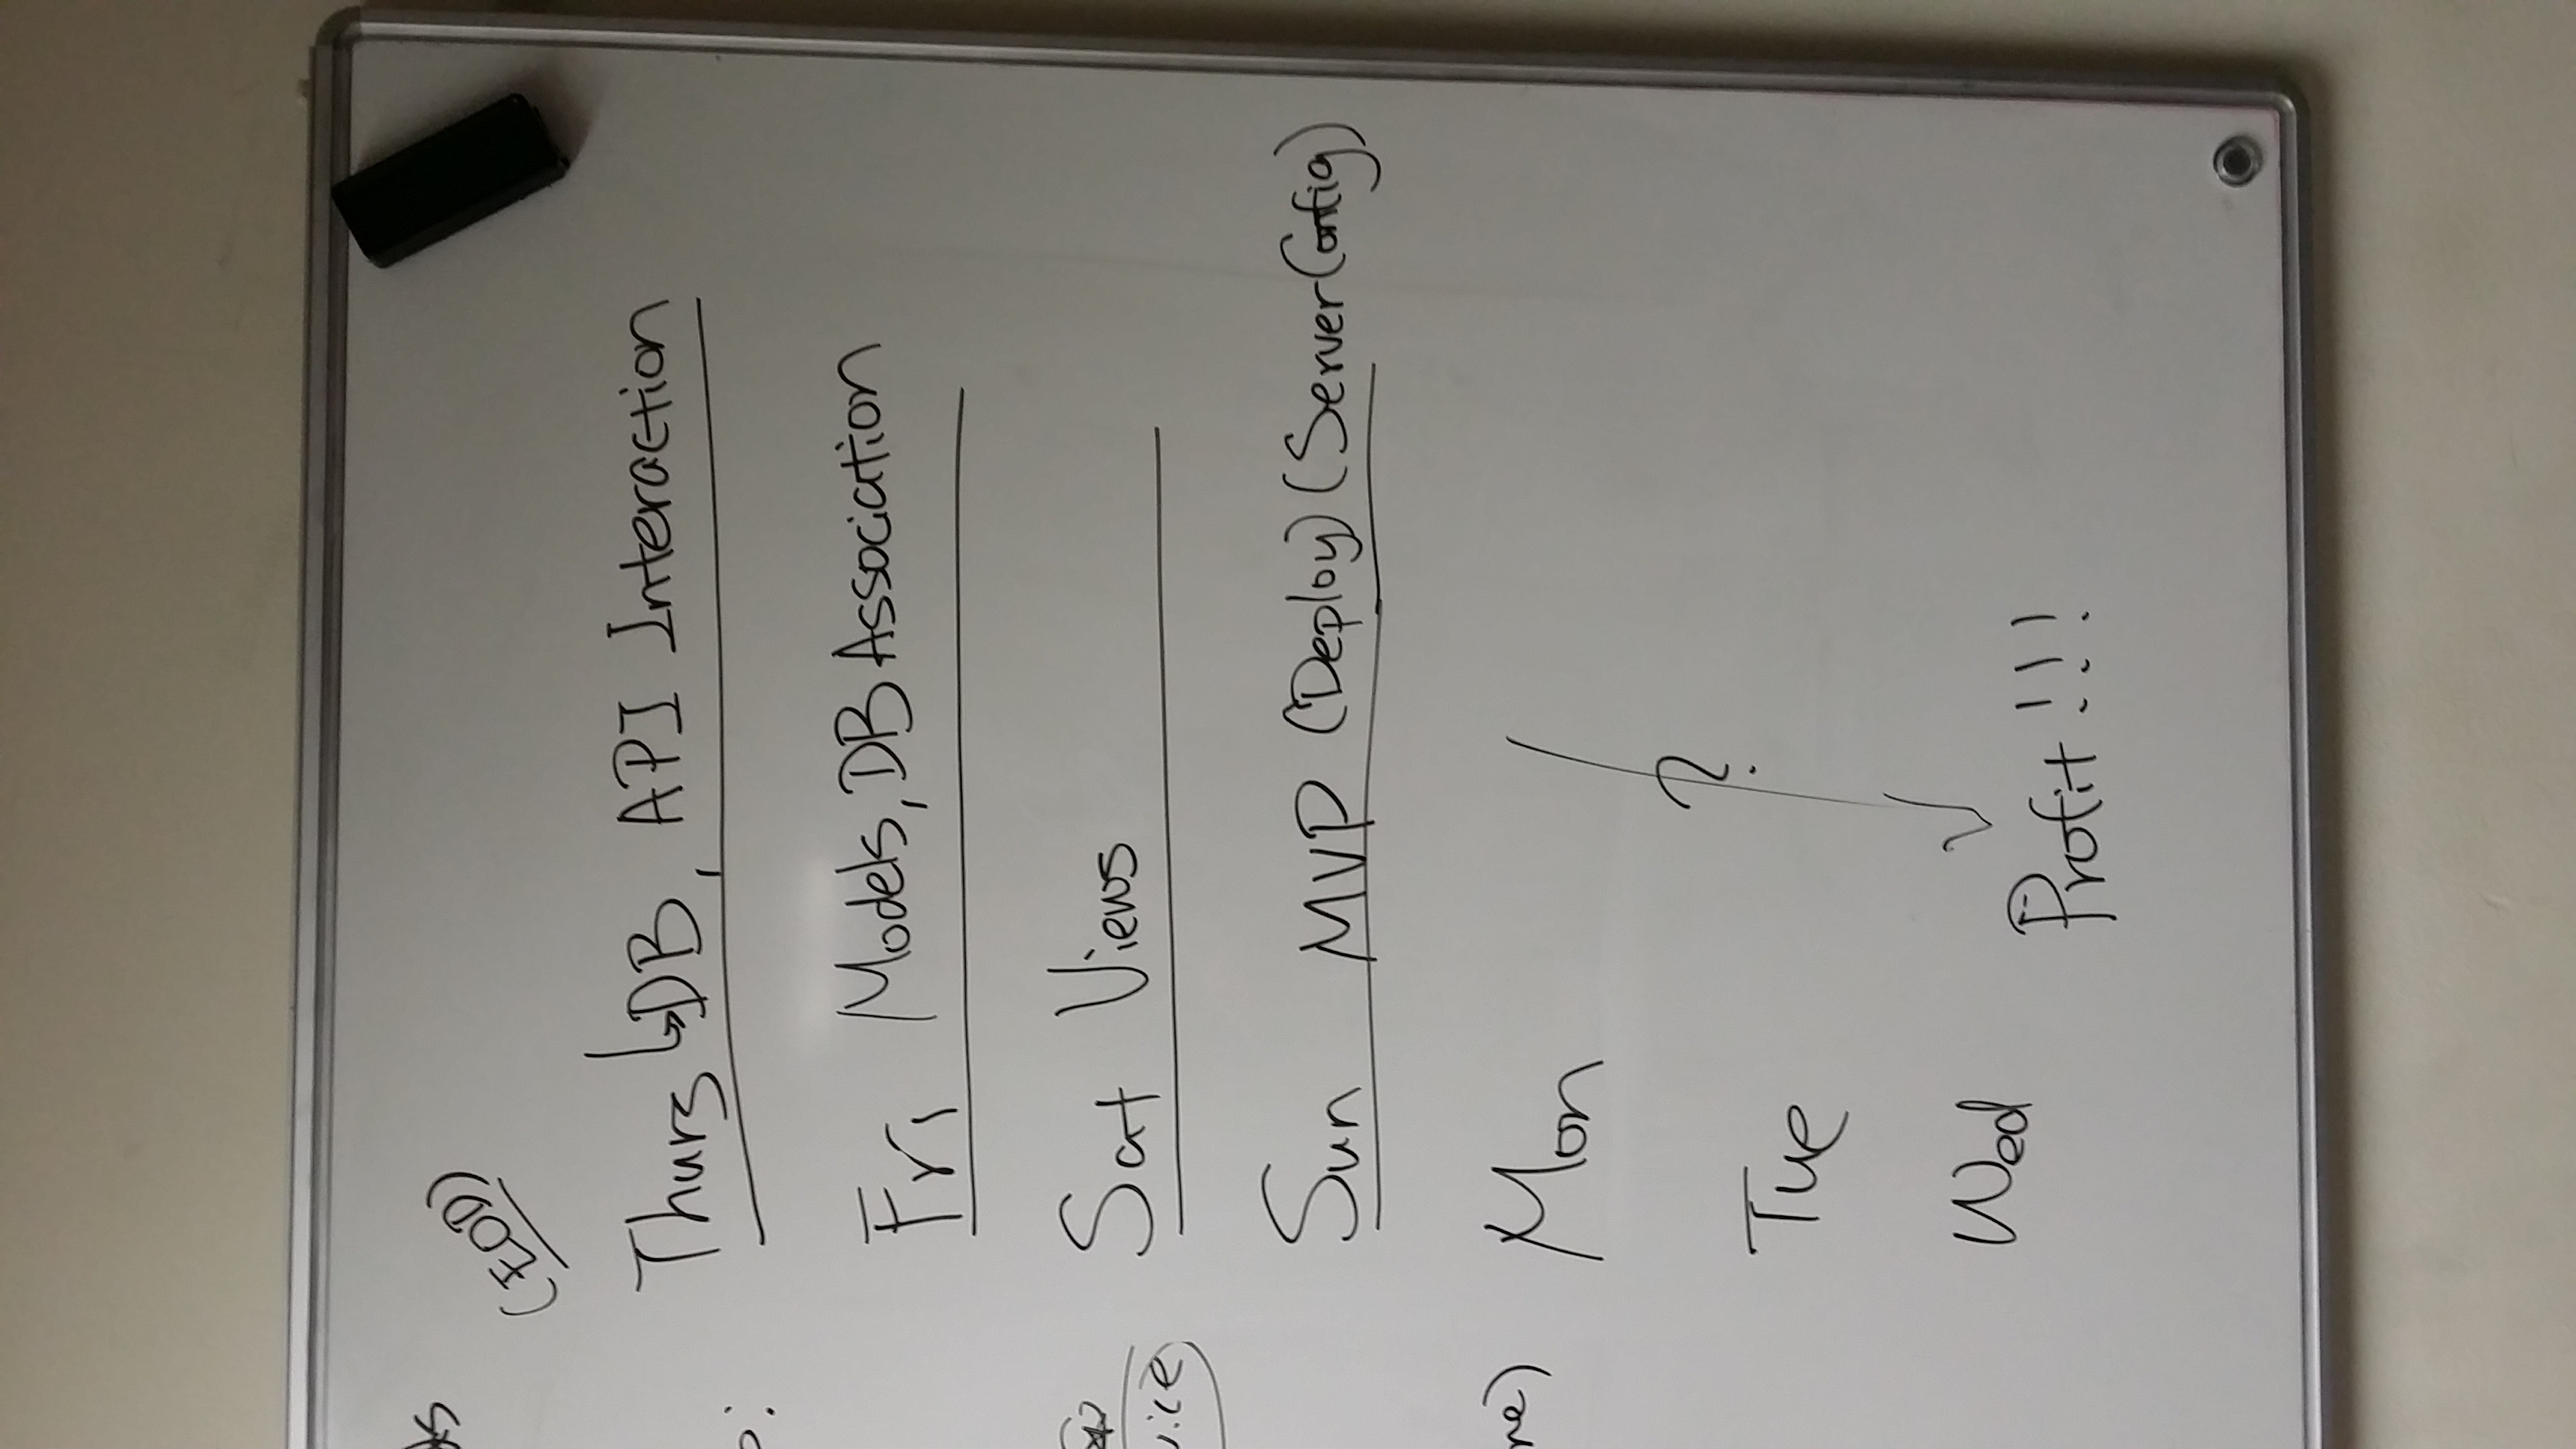 (EOD)
Thurs ↳DB, API Interaction
Fri Models, DB Association
Sat Views
Sun MVP (Deploy) (Server Config)
Mon
?
Tue
Wed
Profit!!!